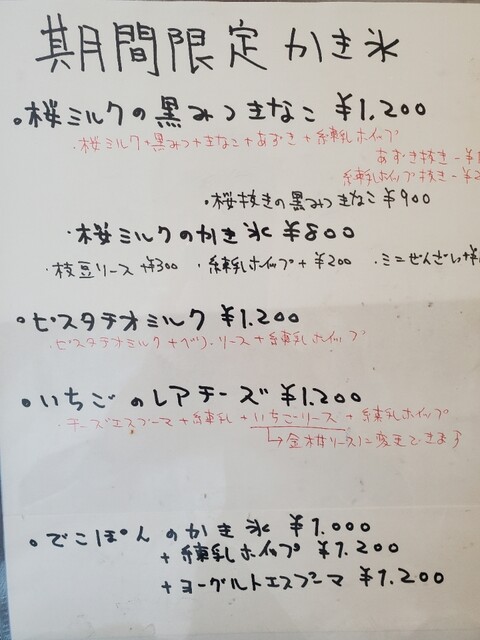 期間限定かき氷
。桜ミルクの黒みつきなこ ¥1.200
・桜ミルク+黒みつ+きなこ+あずき+練乳ホイップ
あずき抜き-¥1
練乳ホイップ抜き-¥2
・桜抜きの黒みつきなこ ¥900
・桜ミルクのかき氷 ¥800
・枝豆ソース+¥300 ・練乳ホイップ+¥200 ・ミニぜんざい+¥
。ピスタチオミルク ¥1.200
・ピスタチオミルク+ベリーソース+練乳ホイップ
。いちごのレアチーズ ¥1.200
・チーズエスプーマ+練乳+いちごソース+練乳ホイップ
→金柑ソースに変更できます
。でこぽんのかき氷 ¥1.000
+練乳ホイップ ¥1.200
+ヨーグルトエスプーマ ¥1.200